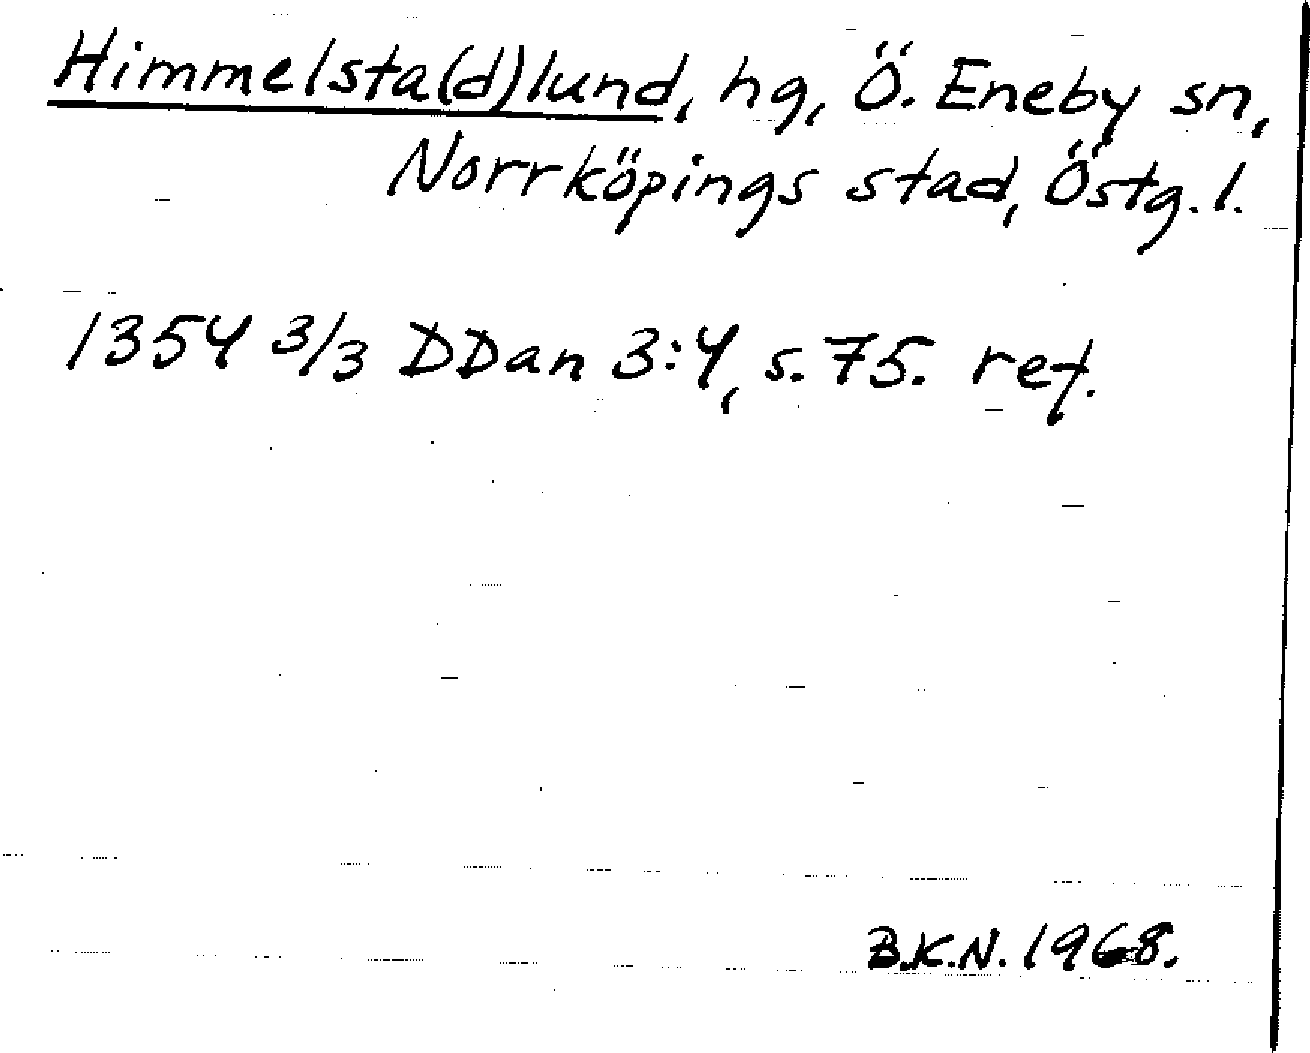 Himmelsta(d)lund, hg, Ö. Eneby sn,
Norrköpings stad, Östg. l.
1354 3/3 DDan 3:4, s. 75. ref.
B.K.N. 1968.